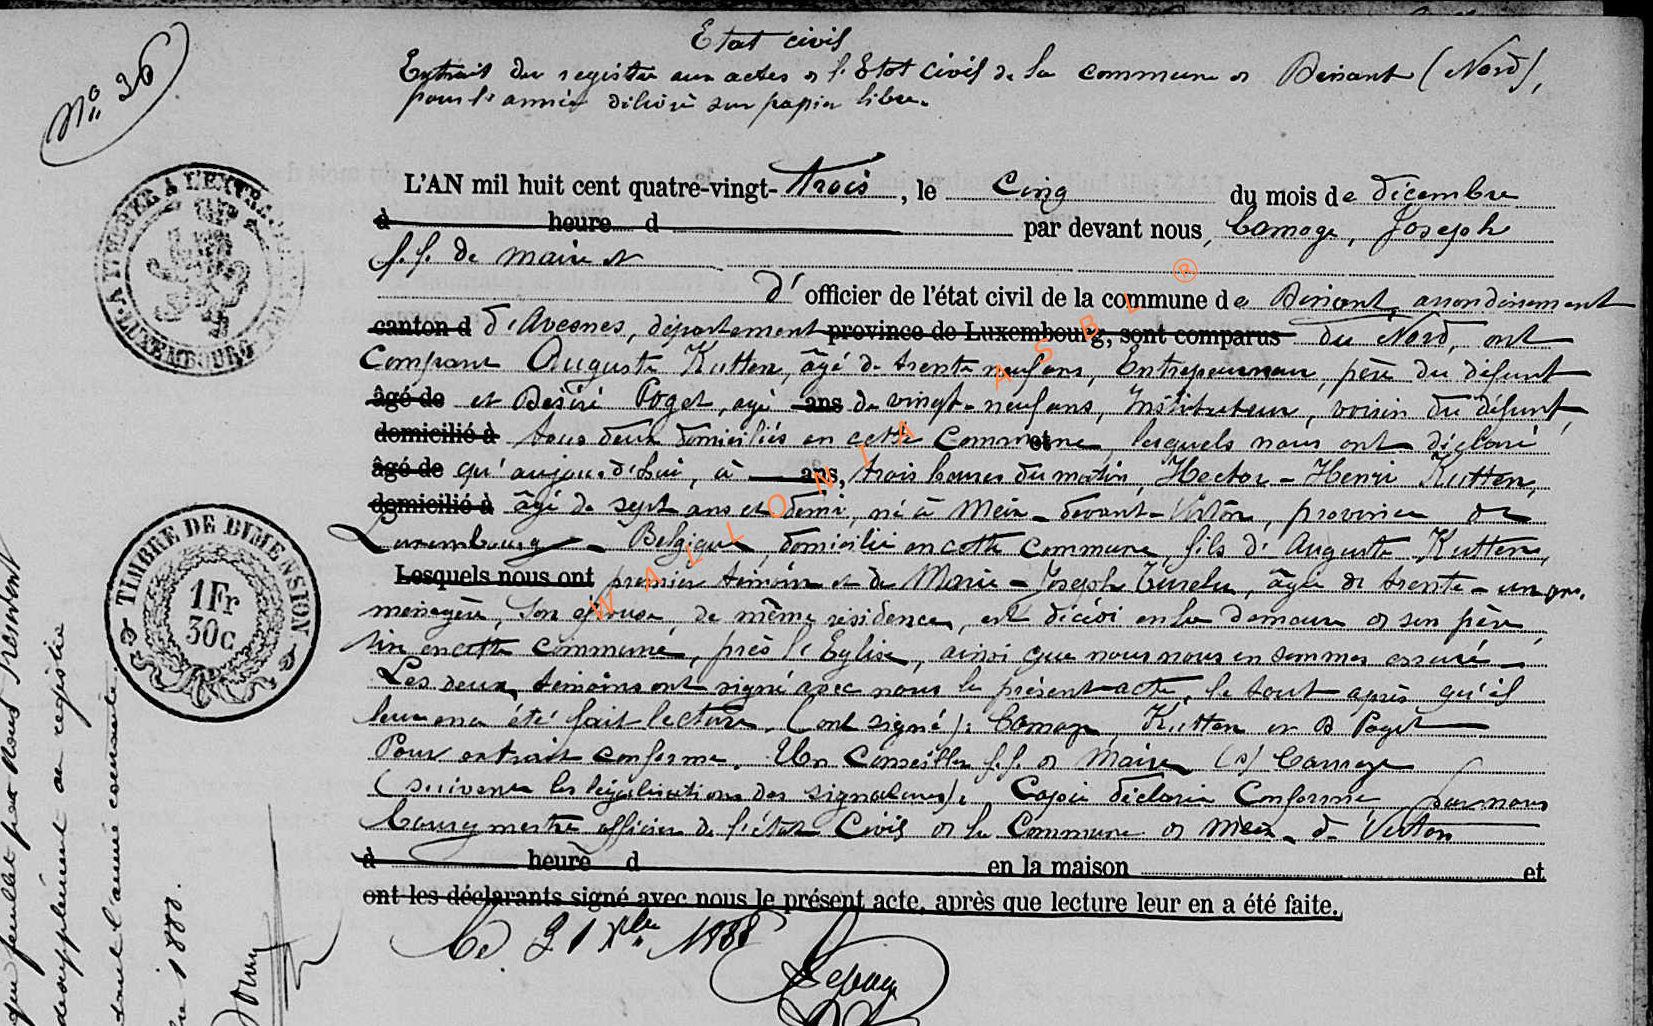 Nº 36
Etat civil
Extrait du registre aux actes de l'Etat civil de la commune de (Nord),
pour l'année délivré sur papier libre.
A TIMBRER A L'EXTRAORDINAIRE
LUXEMBOURG
L'AN mil huit cent quatre-vingt-trois, le Cinq du mois de décembre
à heure d par devant nous, Camoge, Joseph
f.f. de maire et
d'officier de l'état civil de la commune de arrondissement
canton d d'Avesnes, département province de Luxembourg, sont comparus du Nord, ont
comparu Auguste Kutten, âgé de trente neuf ans, Entrepreneur, père du défunt
âgé de et Désiré Poget, agé ans de vingt-neuf ans, Instituteur, voisin du défunt,
domicilié à tous deux domiciliés en cette commune et, lesquels nous ont déclaré
âgé de qu'aujourd'hui, à ans, trois heures du matin, Hector-Henri Kutten,
domicilié à âgé de sept ans et demi, né à Meix-devant-Virton, province de
Luxembourg - Belgique, domicilié en cette commune, fils d'Auguste Kutten,
Lesquels nous ont premier témoin et de Marie-Joseph âgée de trente-un ans,
ménagère, son épouse de même résidence, est décédé en la demeure de son père
sise en cette commune, près l'Eglise, ainsi que nous nous en sommes assuré
Les deux témoins ont signé avec nous le présent acte, le tout après qu'il
leur en a été fait lecture. (ont signé): Camoge, Kutten et D Poget
Pour extrait conforme. Un Conseiller f.f. de Maire (s) Camoge
(suivent les législations des signatures). Copie déclarée Conforme, par nous
Bourgmestre officier de l'état Civil de la Commune de Meix-dt-Virton
à heure d en la maison et
ont les déclarants signé avec nous le présent acte, après que lecture leur en a été faite.
Ce 21 Xbre 1888
TIMBRE DE DIMENSION
1Fr
30c
WALLONIA ASBL ®
que feuille par nous
de supplément au registre
l'année courante
1888.